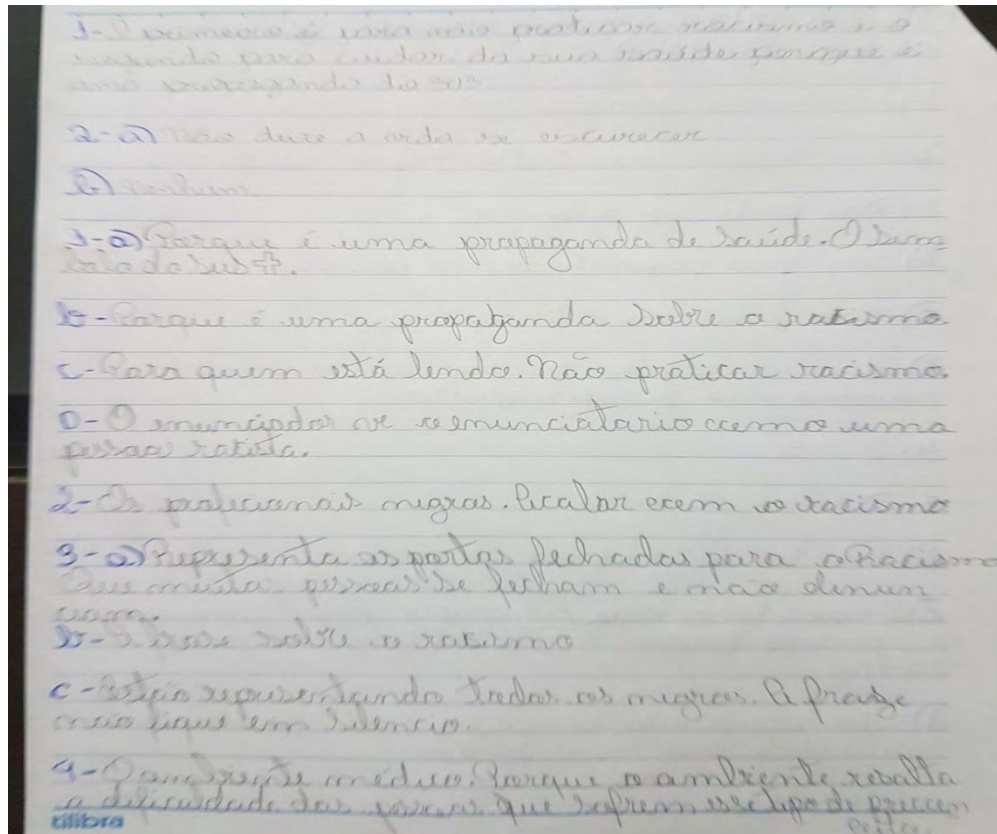 1- O primeiro é para não praticar racismo e o
segundo para cuidar da sua saúde porque é
uma propaganda do SUS
2-a) Não deixe a onda se escurecer
b) nenhum
1-a) Porque é uma propaganda de saúde. O sim
bolo do sus +.
b- Porque é uma propaganda sobre o racismo.
c- Para quem está lendo. Não praticar racismo.
D- O enunciador ve o enunciatario como uma
pessoa racista.
2- Os negras. o racismo
3-a) Representa as portas fechadas para o Racismo
Que muitas pessoas se fecham e não denun
ciam.
b- a frase sobre o racismo
c- Estão representando todos os negros. A fraze
não fique em silencio.
4- O ambiente médico. Porque o ambiente resalta
a dificuldade das pessoas que sofrem esse tipo de precon
ceito
tilibra